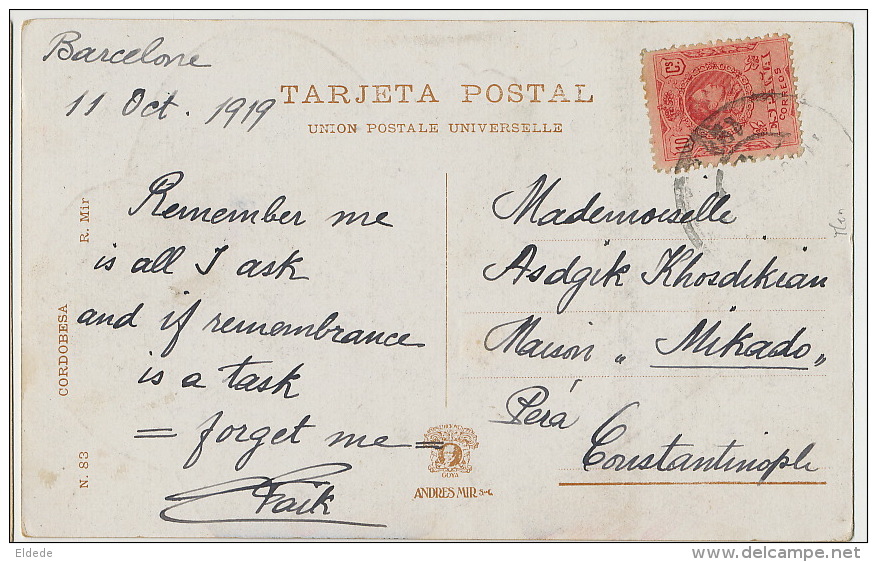 Barcelone
11 Oct. 1919
TARJETA POSTAL
UNION POSTALE UNIVERSELLE
Remember me
is all I ask
and if remembrance
is a task
= forget me =
Faik
Mademoiselle
Asdgik Khosdikian
Maison „ Mikado „
Péra
Constantinople
R. Mir
CORDOBESA
N. 83
GOYA
ANDRES MIR S. en C.
10 CS
CORREOS
Eldede
http://www.delcampe.net